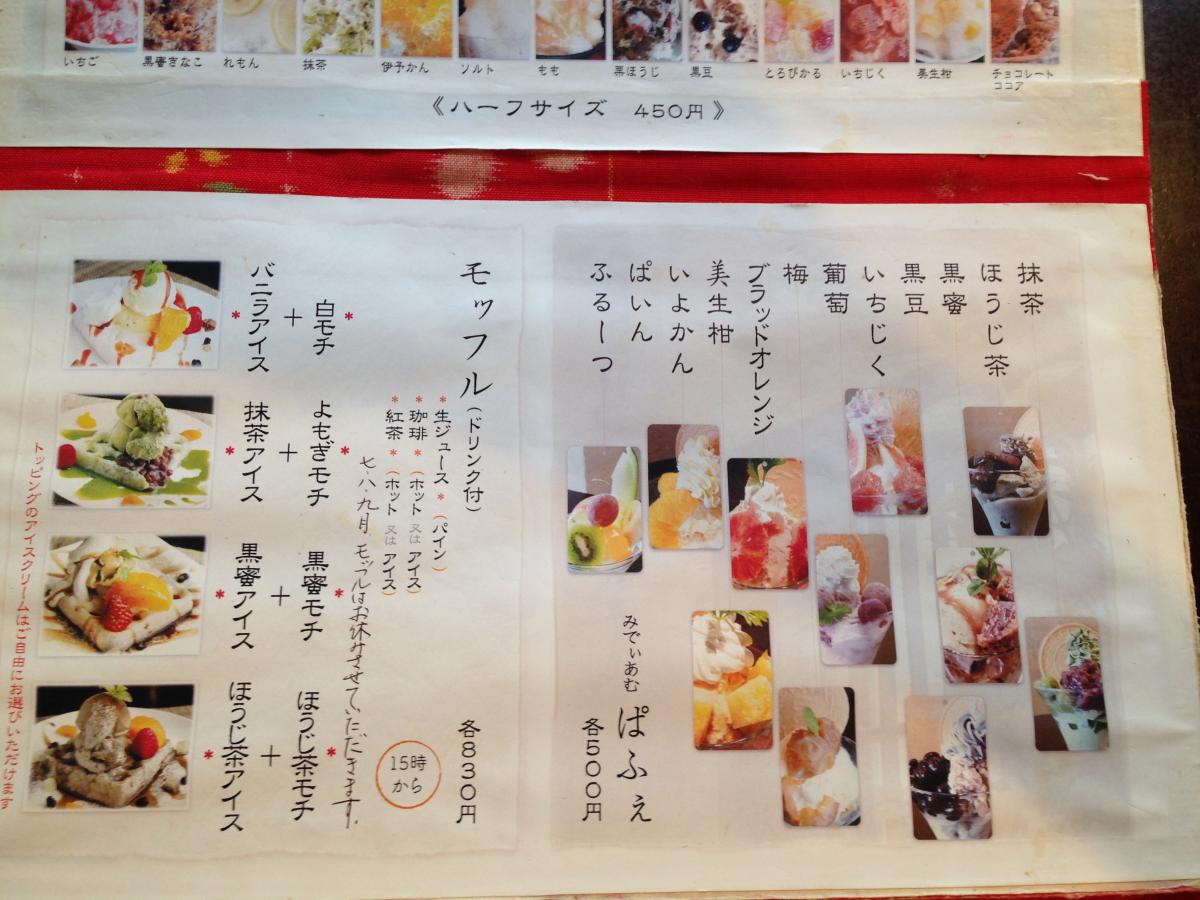 いちご
黒蜜きなこ
れもん
抹茶
伊予かん
ソルト
もも
黒ほうじ
黒豆
とろぴかる
いちじく
美生柑
チョコレート
ココア
《ハーフサイズ 450円》
抹茶
ほうじ茶
黒蜜
黒豆
いちじく
葡萄
梅
ブラッドオレンジ
美生柑
いよかん
ぱいん
ふるーつ
みでぃあむ ぱふぇ
各500円
モッフル(ドリンク付)
各830円
*生ジュース*(パイン)
*珈琲*(ホット又はアイス)
*紅茶*(ホット又はアイス)
15時
から
七、八、九月、モッフルはお休みさせていただきます。
*白モチ*
+
バニラアイス
*よもぎモチ*
+
抹茶アイス
*黒蜜モチ*
+
黒蜜アイス
*ほうじ茶モチ*
+
ほうじ茶アイス
トッピングのアイスクリームはご自由にお選びいただけます